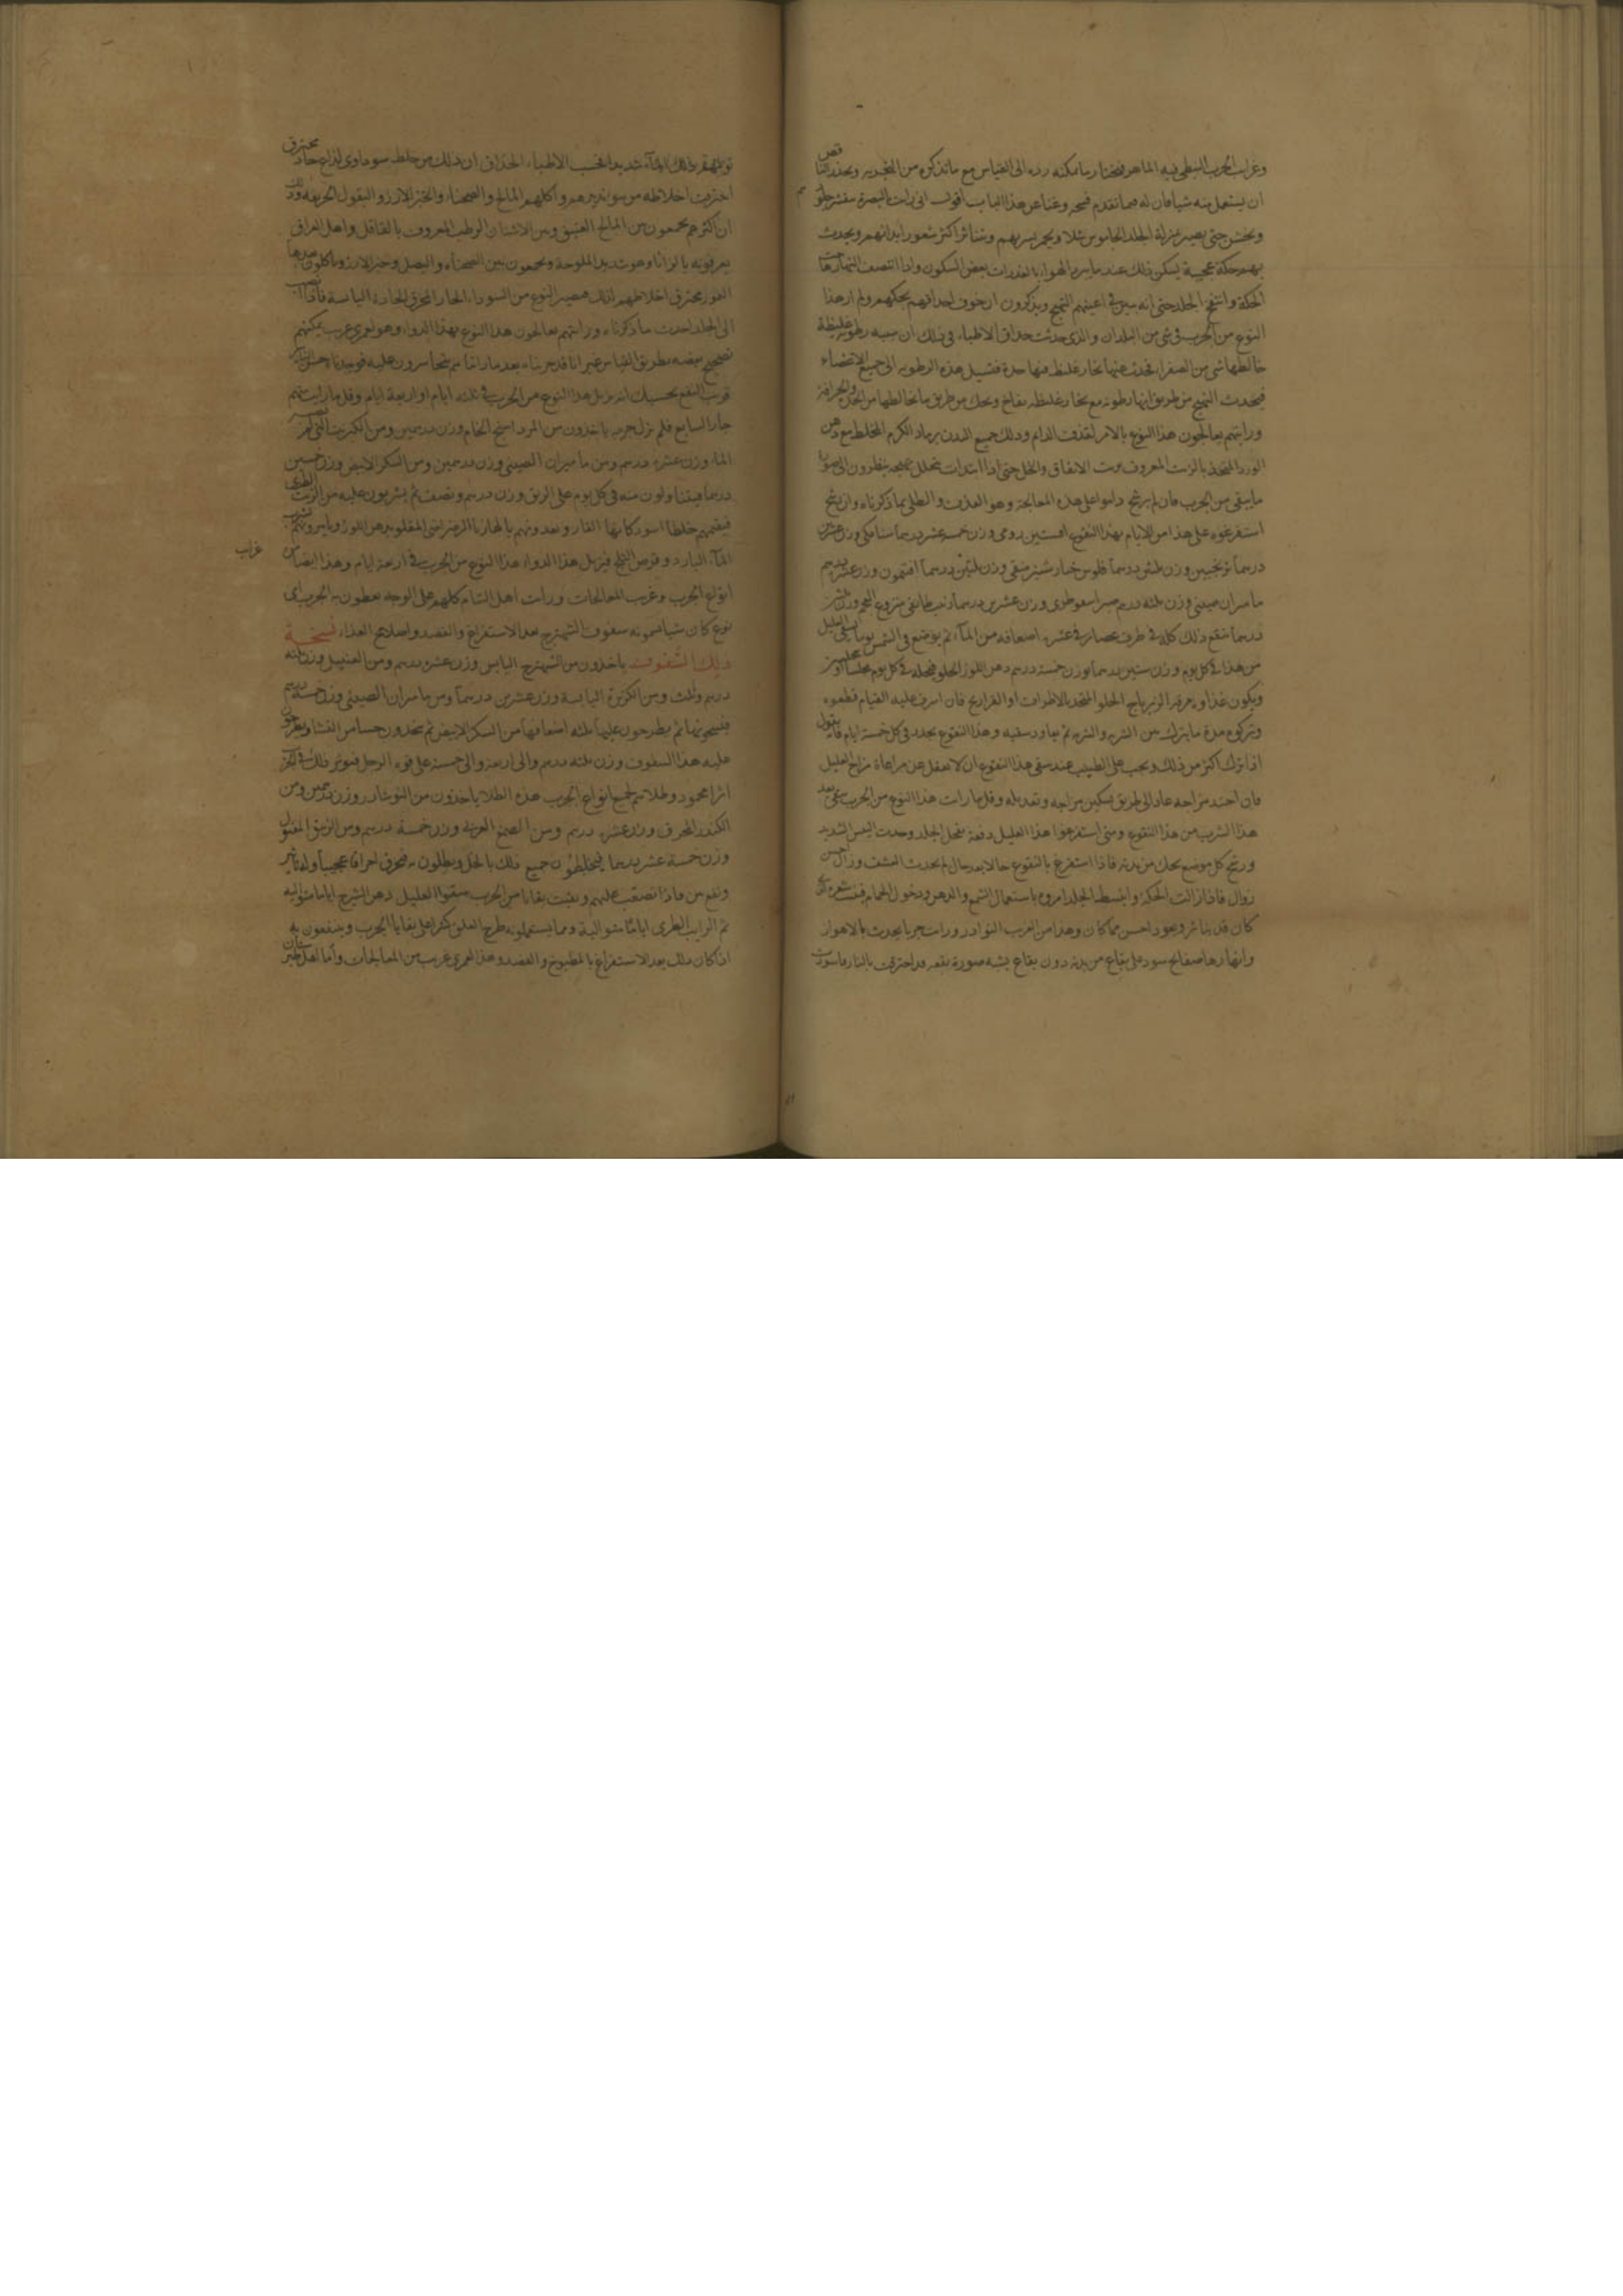 وغرايب الجرب النبطى فيه الماهر فيختار ما يمكنه رده الى القياس مع ما تذكره من التجربه ويحذر
ان يستعمل منه شيا فان له مما تقدم فيه وغنا عن هذا الباب اقول انى رايت بالبصرة
ويخشن حتى يصير بمنزلة الجلد الجاموس مثلا ويحمر بدنهم ويتناثر اكثر شعور ابدانهم ويحدث
بهم حكة عجيبة يسكن ذلك عند ما يبرد الهواء بالغدوات بعض السكون واذا انتصف النهار
الحكة وانتفخ الجلد حتى انه يبين فى اعينهم التهيج ويذكرون ان جوف احداقهم يحكهم ولم ار هذا
النوع من الجرب فى شى من البلدان والذى حدث حذاق الاطباء فى ذلك ان سببه رطوبه غليظة
خالطها شى من الصفراء فحدث عنها بخار غليظ فيها حدة فتسيل هذه الرطوبه الى جميع الاعضاء
فيحدث التهيج من طريق انها رطوبه مع بخار غليظ نفاخ ويحك من طريق ما يخالطها من الحدة والحرافة
ورايتهم يعالجون هذا النوع بالامر لقذف الدايم ودلك جميع البدن برماد الكرم المخلط مع دهن
الورد المتخذ بالزيت المعروف بزيت الانفاق والخل حتى اذا ابتدات يتحلل تهيجه ينظرون الى
ما يبقى من الجرب فان لم يرشح داموا على هذه المعالجة وهو القذف والطلى بما ذكرناه وان رشح
استفرغوه على هذا من الايام بهذا النقوع افسنتين رومى وزن خمسة عشر درهما سنا مكى وزن عشرين
درهما ترنجبين وزن ثلثين درهما فلوس خيار شنبر منقى وزن ثلثين درهما افتيمون وزن عشرة درهم
ماميران صينى وزن ثلثه درهم صبر اسقوطرى وزن عشرين درهما زبيب طايفى منزوع العجم وزن ثلثين
درهما ينقع ذلك كله فى ظرف غضار فى عشرة اضعافه من الماء ثم يوضع فى الشمس يوما يسقى العليل
من هذا فى كل يوم وزن ستين درهما بوزن خمسة درهم دهن اللوز الحلو فيحله فى كل يوم مجلسا او مجلسين
ويكون غذاوه مرقة الزيرباج الحلو المتخذ بالاطراف او الفراريج فان اسرف عليه القيام قطعوه
وتركوه مدة ما يترك بين الشربه والشربه ثم يعاود سقيه وهذا النقوع يجدد فى كل خمسة ايام
اذا ترك اكثر من ذلك ويجب على الطبيب عند سقى هذا النقوع ان لا يغفل عن مراعاة مزاج العليل
فان احتد مزاجه عاد الى طريق تسكين مزاجه وتعديله وقل ما رايت هذا النوع من الجرب يبقى بعد
هذا الشرب من هذا النقوع ومتى استفرغوا هذا العليل دفعة نحل الجلد وحدث اليبس الشديد
ورشح كل موضع يحك من بدنه فاذا استفرغ بالنقوع حالا بعد حال لم يحدث القشف وزال احسن
زوال فاذا زالت الحكة وانبسط الجلد امروه باستعمال الشمع والدهن ودخول الحمام فينبت شعره الذى
كان قد تناثر ويعود احسن مما كان وهذا من اغرب النوادر ورايت جربا يحدث بالاهواز
وانهارها صفايح سود على بقاع من بدنه دون بقاع يشبه صورة بقعه قد احترقت بالنار فاسودت
توليهم فى ذلك الماء شديدا فحسب الاطباء الحذاق ان ذلك من خلط سوداوى لذاع حاد محترق
احترقت اخلاطه من سو تدبيرهم واكلهم المالح والصحناء والخبز الارز والبقول الحريفه وذلك
ان اكثرهم يجمعون بين المالح العتيق وبين الاشنان الرطب المعروف بالقاقلى واهل العراق
يعرفونه وهو شديد الملوحة ويجمعون بين الصحناء والبصل وخبز الارز وياكلون
التمور فتحترق اخلاطهم لذلك فيصير النوع من السوداء الحار المحرق الحارة اليابسة فاذا انصب
الى الجلد احدث ما ذكرناه ورايتهم يعالجون هذا النوع بهذا الدواء وهو لعمرى غريب يمكنهم
تصحيح بعضه بطريق القياس غير انا قد جربناه بعد ما راينا من يتجاسرون عليه فوجدناه حسن التاثير
قريب النفع بحسبك انه يزيل هذا النوع من الجرب فى ثلثه ايام او اربعة ايام وقل ما رايت منهم
جاز السابع فلم يزل جربه ياخذون من المرداسنج الخام وزن درهمين ومن الكبريت
الماء وزن عشرة درهم ومن ماميران الصينى وزن درهمين ومن السكر الابيض وزن خمسين
درهما فيتناولون منه فى كل يوم على الريق وزن درهم ونصف ثم يشربون عليه من الزيت
فيقيهم خلطا اسود كانها القار ويغذونهم بالهازبا الرضراضى المقلو بدهن اللوز ويامرونهم بشرب
الماء البارد وقرص الثلج فيزيل هذا الدواء هذا النوع من الجرب فى اربعة ايام وهذا ايضا من
غراب
انواع الجرب وغريب المعالجات ورايت اهل الشام كلهم على الوجه يعطون به الجرب اى
نوع كان شيا يسمونه سفوف الشهترج بعد الاستفراغ والفصد واصلاح الغذاء نسخة
ذلك السفوف ياخذون من الشهترج اليابس وزن عشرة درهم ومن وزن ثلثه
درهم وثلث ومن الكزبرة اليابسة وزن عشرين درهما ومن ماميران الصينى وزن خمسة درهم
فيسحقونها ثم يطرحون عليها ثلثه اضعافها من السكر الابيض ثم يتخذون حسا من النشا ويطرحون
عليه هذا السفوف وزن ثلثه درهم والى اربعة والى خمسة على قوه الرجل فيوثر ذلك فى الجرب
اثرا محمودا وطلاهم لجميع انواع الجرب هذه الطلا ياخذون من النوشادر وزن درهمين ومن
الكندر المحرق وزن عشرة درهم ومن الصمغ العربى وزن خمسة درهم ومن الزيبق المقتول
وزن خمسة عشر درهما فيخلطون جميع ذلك بالخل ويطلون به فيحرق احراقا عجيبا وله تاثير
ونفع بين فاذا تصعب عليهم وبقيت بقايا من الجرب سقوا العليل دهن الشيرج اياما متواليه
ثم الرايب الطرى اياما متوالية ومما يستعملونه طرح العلق كثيرا على بقايا الجرب وينتفعون به
اذا كان ذلك بعد الاستفراغ بالمطبوخ والفصد وهذا لعمرى غريب من المعالجات واما اهل طبرستان